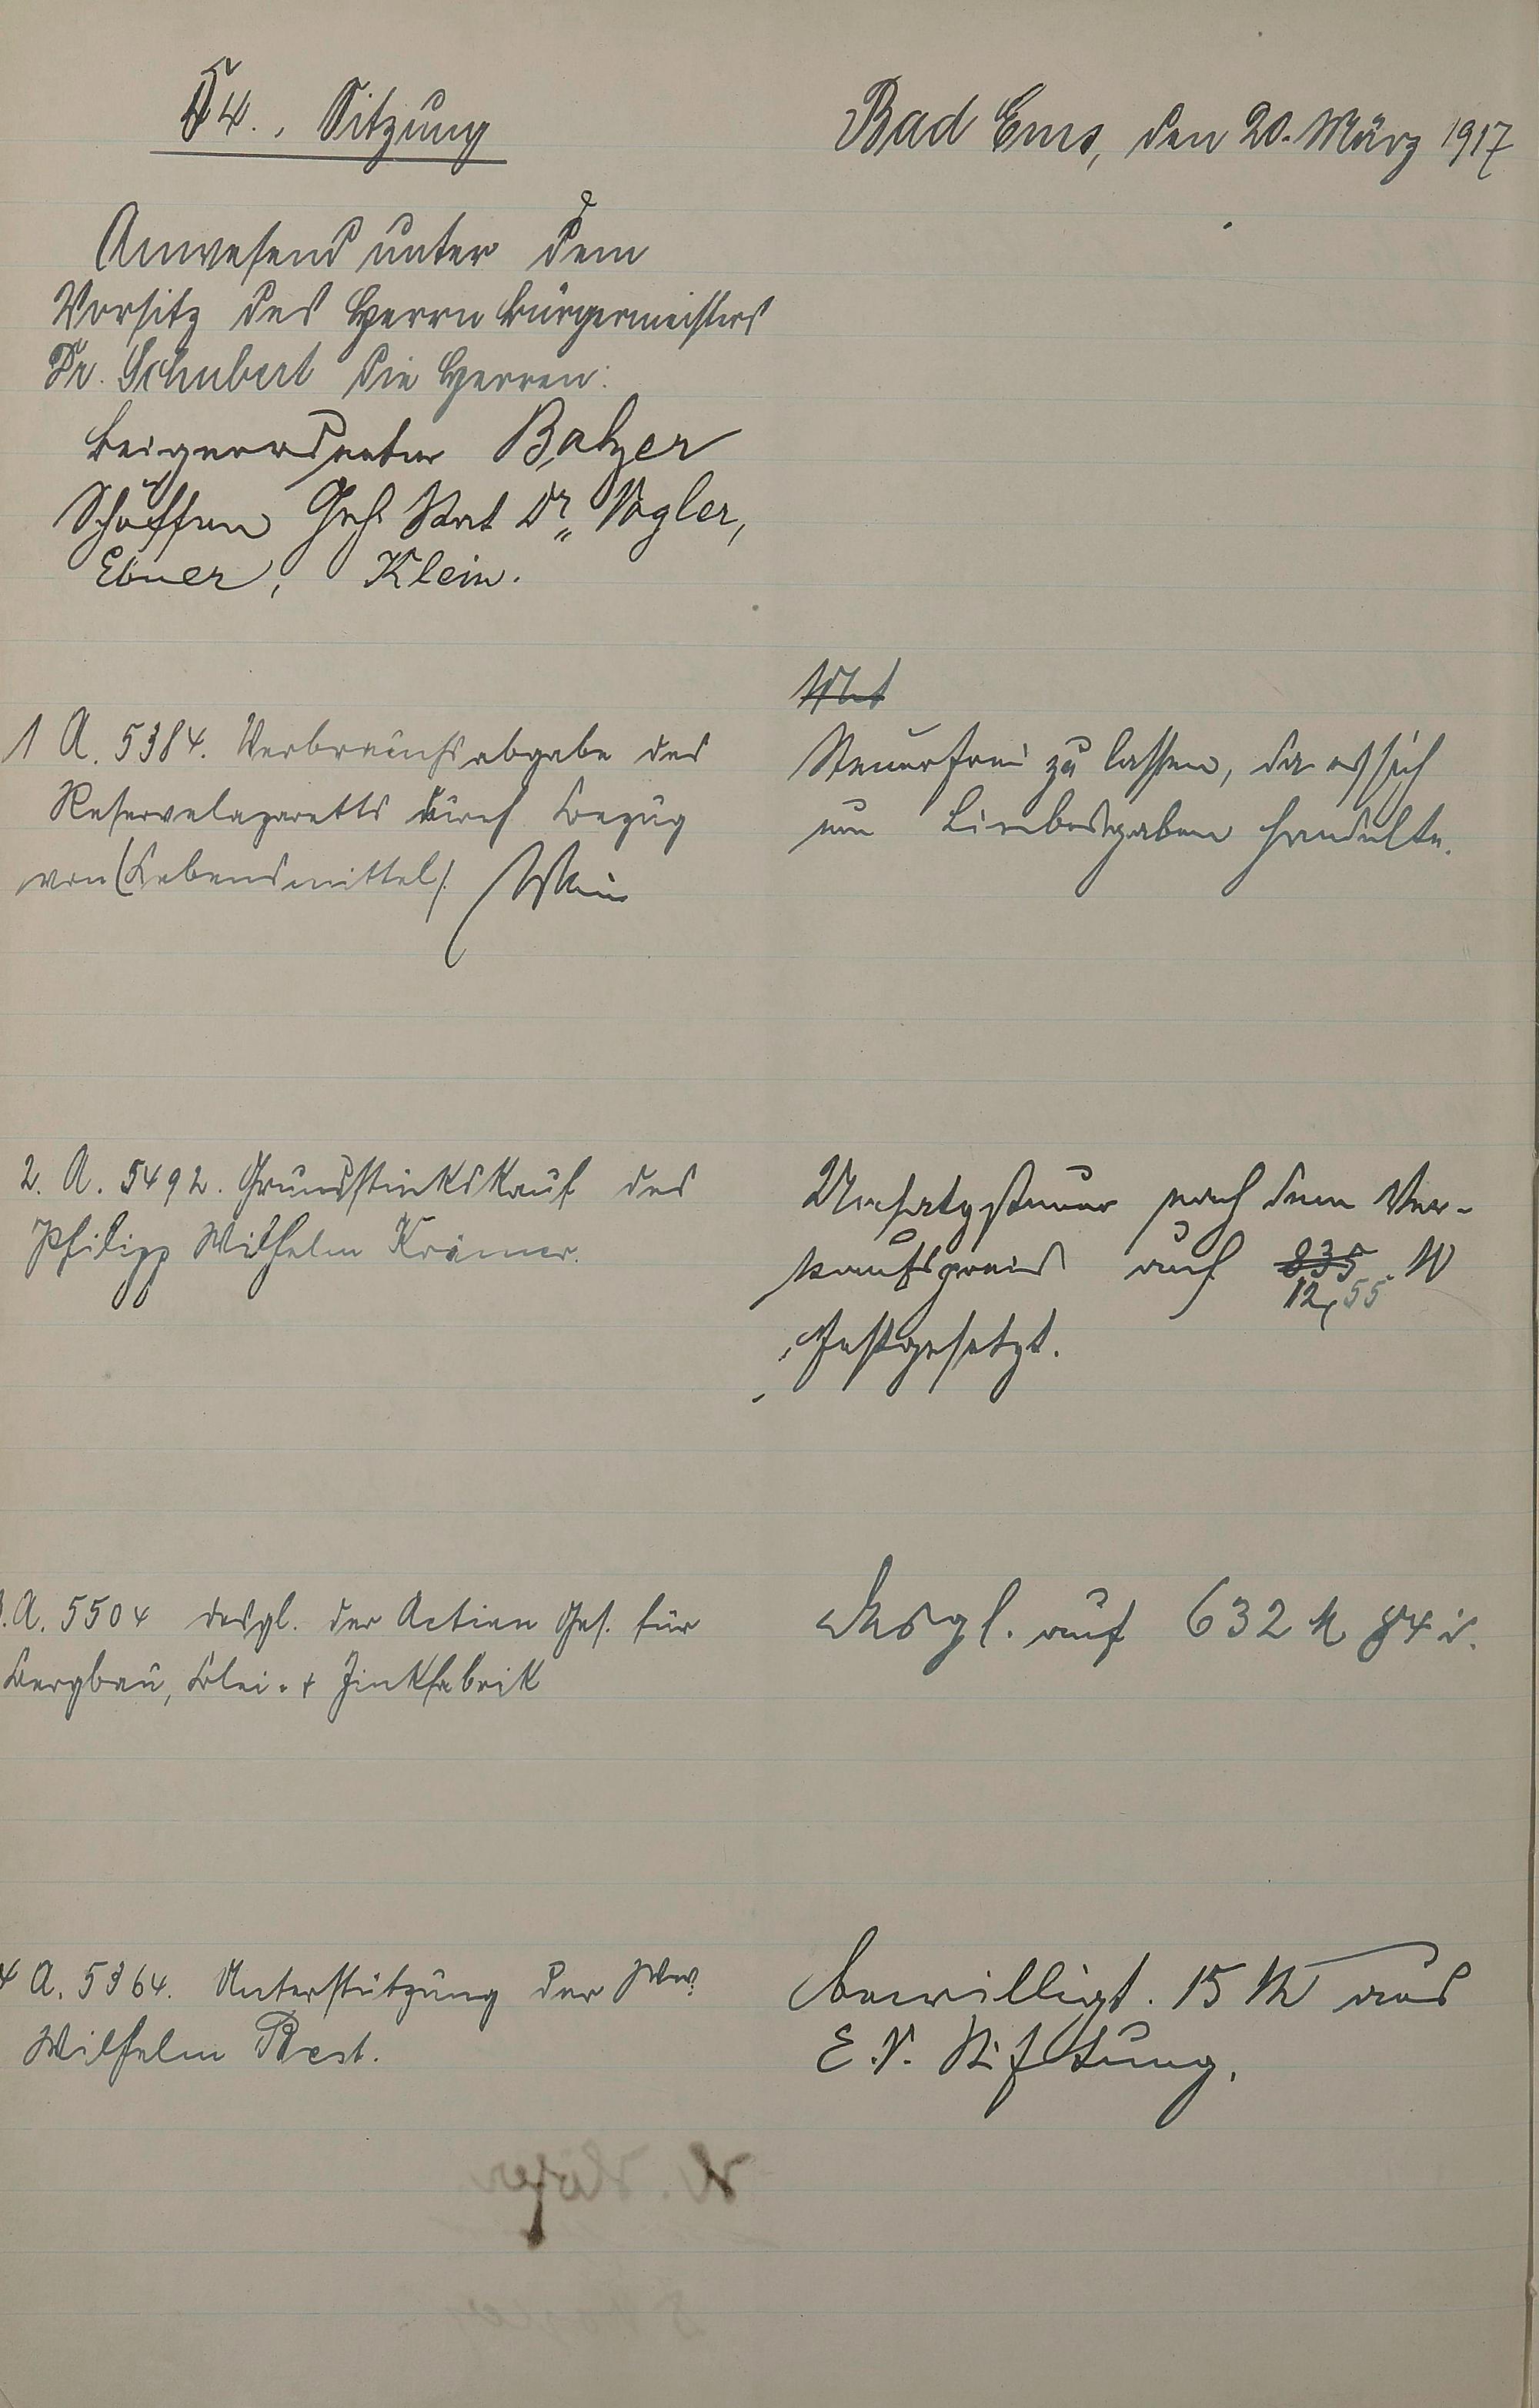 54., Sitzung
Bad Ems, den 20. März 1917
Anwesend unter dem
Vorsitz des Herrn Bürgermeisters
Dr. Schubert die Herren:
Beigeordneter Balzer
Schöffen Geh. Rat Dr. Vogler,
Ebner, Klein.
1 A. 5384. Verbrauchsabgabe des
Reservelazaretts durch Bezug
von (Lebensmittel). Wein
Steuerfrei zu lassen, da es sich
um Liebesgaben handelte.
2. A. 5492. Grundstückskauf des
Philipp Wilhelm Krämer.
Umsatzsteuer nach dem Ver-
kaufspreis auf 835 M
12,55
festgesetzt.
3. A. 5504 desgl. der Actien Ges. für
Bergbau, Blei- + Zinkfabrik
Desgl. auf 632 M 84
4 A. 5364. Unterstützung der Ww.
Wilhelm Best.
bewilligt. 15 M aus
E.V. Stiftung.